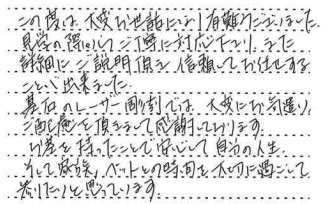 この度は、大変お世話になり有難うございました。
見学の際はいつもご丁寧に対応下さり、また
詳細にご説明頂き、信頼してお任せする
ことが出来ました。
墓石のレーザー彫刻では、大変にお気遣い、
ご配慮を頂きまして感謝しております。
お墓を持ったことで安心して自分の人生、
そして家族、ペットとの時間を大切に過ごして
参りたいと思っています。